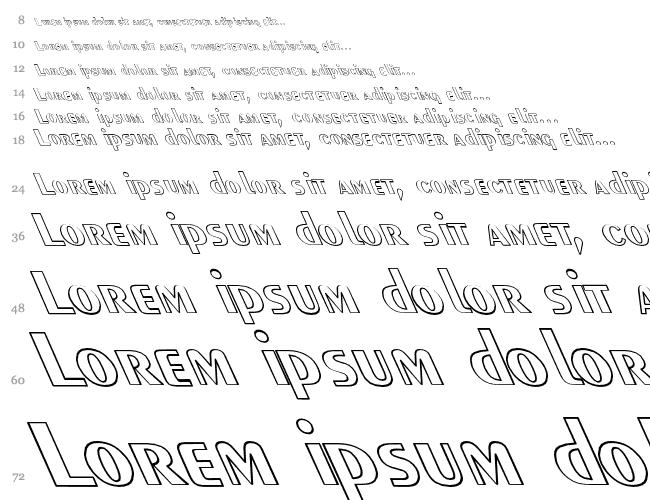 8 Lorem ipsum dolor sit amet, consectetuer adipiscing elit...
10 Lorem ipsum dolor sit amet, consectetuer adipiscing elit...
12 Lorem ipsum dolor sit amet, consectetuer adipiscing elit...
14 Lorem ipsum dolor sit amet, consectetuer adipiscing elit...
16 Lorem ipsum dolor sit amet, consectetuer adipiscing elit...
18 Lorem ipsum dolor sit amet, consectetuer adipiscing elit...
24 Lorem ipsum dolor sit amet, consectetuer adipi
36 Lorem ipsum dolor sit amet, co
48 Lorem ipsum dolor sit a
60 Lorem ipsum dolor
72 Lorem ipsum dol